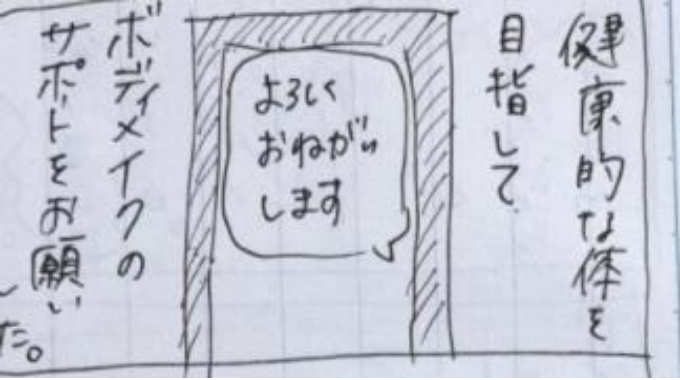 健康的な体を
目指して
よろしく
おねがい
します
ボディメイクの
サポートをお願い
した。